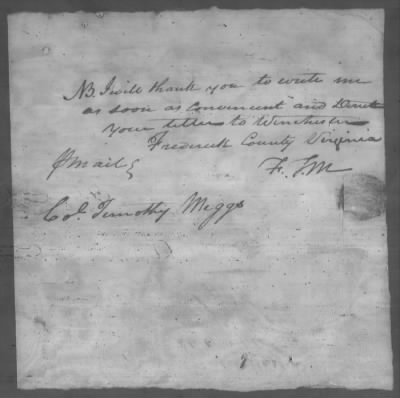 NB. I will thank you to write me
as soon as Convenient and Direct
your letter to Winchester
Frederick County Virginia
F. S M
(Mail)
Col. Timothy Meggs